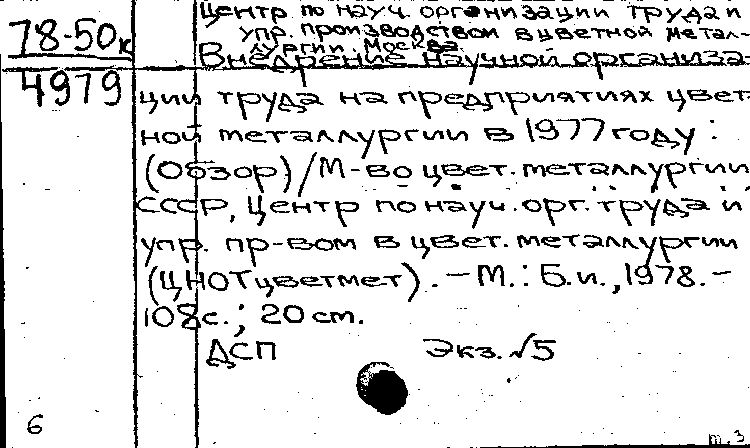 Центр по науч. организации труда и
78-50к
упр. производством в цветной метал-
лургии. Москва.
Внедрение научной организа-
4979
ции труда на предприятиях цвет-
ной металлургии в 1977 году :
(Обзор) / М-во цвет. металлургии
СССР, Центр по науч. орг. труда и
упр. пр-вом в цвет. металлургии
(ЦНОТцветмет). - М. : Б.и., 1978. -
108 с. ; 20 см.
ДСП Экз. √5
6
т. 3